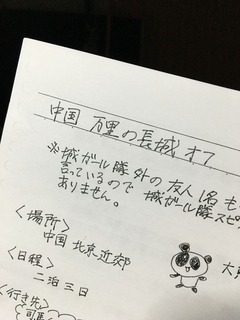 中国 万里の長城 オフ
※城ガール隊外の友人1名も
言っているので 城ガール隊スピ
ありません。
<場所>
中国 北京近郊
<日程>
二泊三日
<行き先>